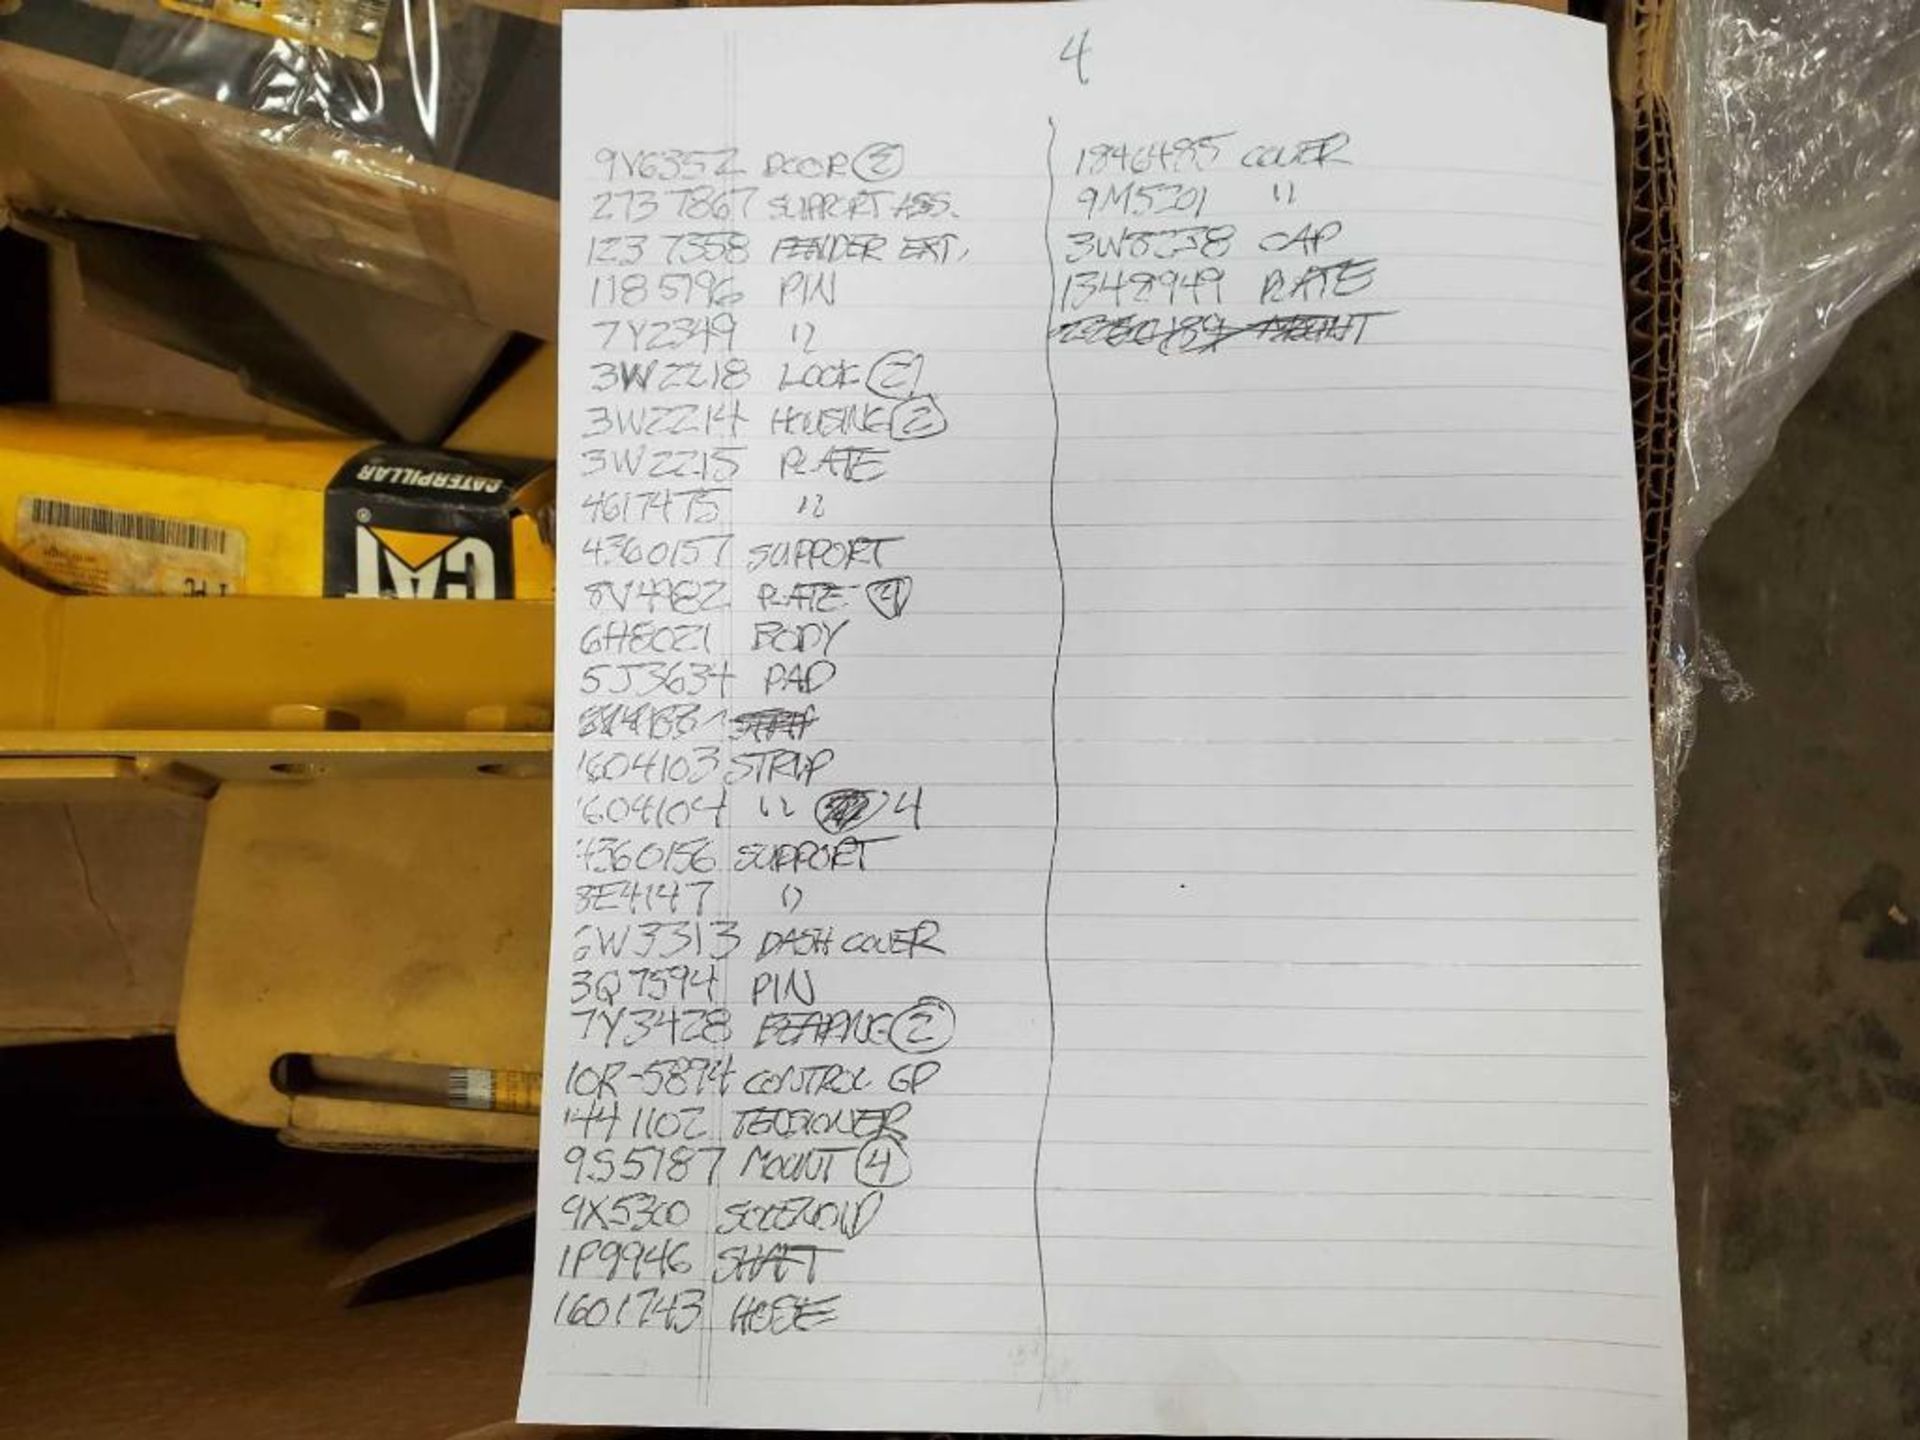 4
9V6352 DOOR (2)
2737867 SUPPORT ASS.
1237358 FENDER EXT.
1185796 PIN
7Y2349 "
3W2218 LOCK (2)
3W2214 HOUSING (2)
3W2215 PLATE
4617475 "
4360157 SUPPORT
8V4982 PLATE (4)
6H8021 BODY
5J3634 PAD
1604103 STRIP
1604104 " 4
4360156 SUPPORT
8E4147 "
6W3313 DASH COVER
3Q7594 PIN
7Y3428 BEARING (2)
10R-5874 CONTROL GP
1441102 TENSIONER
9S5787 MOUNT (4)
9X5300 SOLENOID
1P9946 SHAFT
1601743 HOSE
1846485 COVER
9M5301 "
3W8238 CAP
1348949 PLATE
MOUNT
CATERPILLAR
CAT®
1 PC